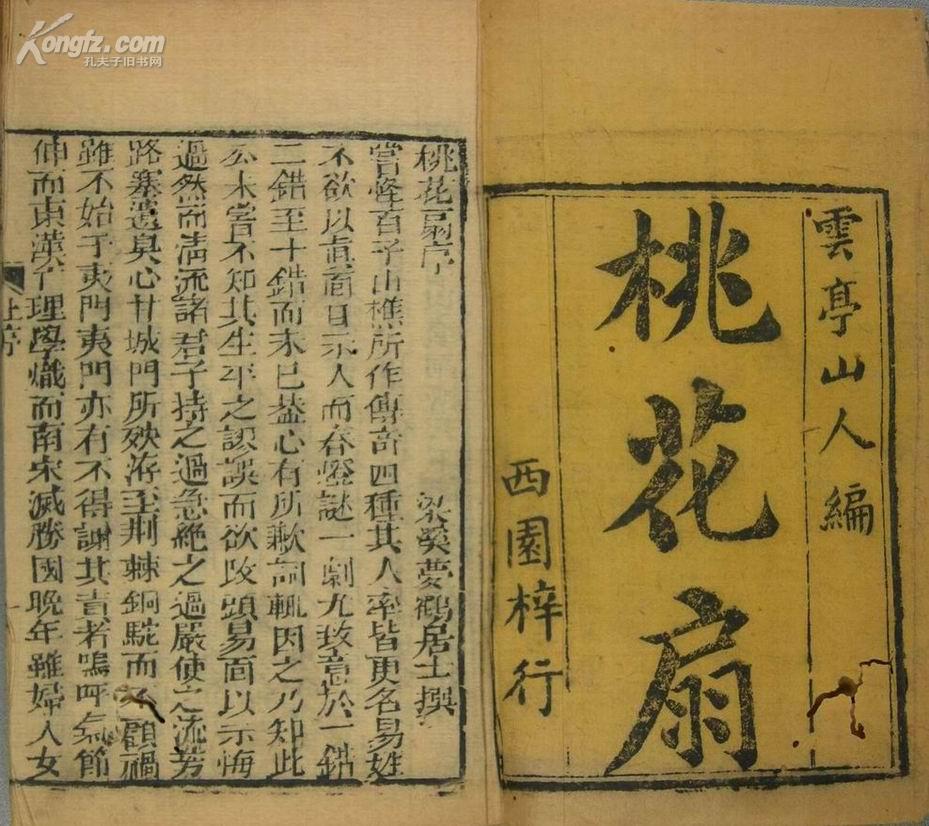 Kongfz.com
孔夫子旧书网
雲亭山人編
桃花扇
西園梓行
桃花扇序
梁溪夢鶴居士撰
嘗怪百子山樵所作傳奇四種其人率皆更名易姓
不欲以真面目示人而春燈謎一劇尤致意於一錯
二錯至十錯而未已蓋心有所歉詞輒因之乃知此
公未嘗不知其生平之謬誤而欲改頭易面以示悔
過然而清流諸君子持之過急絕之過嚴使之流芳
路塞遺臭心甘城門所殃洊至荆棘銅駝而不顧禍
雖不始于夷門夷門亦有不得謝其責者嗚呼氣節
伸而東漢亡理學熾而南宋滅勝國晚年雖婦人女
上序